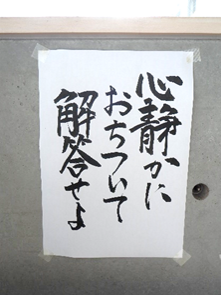 心静かに
おちついて
解答せよ